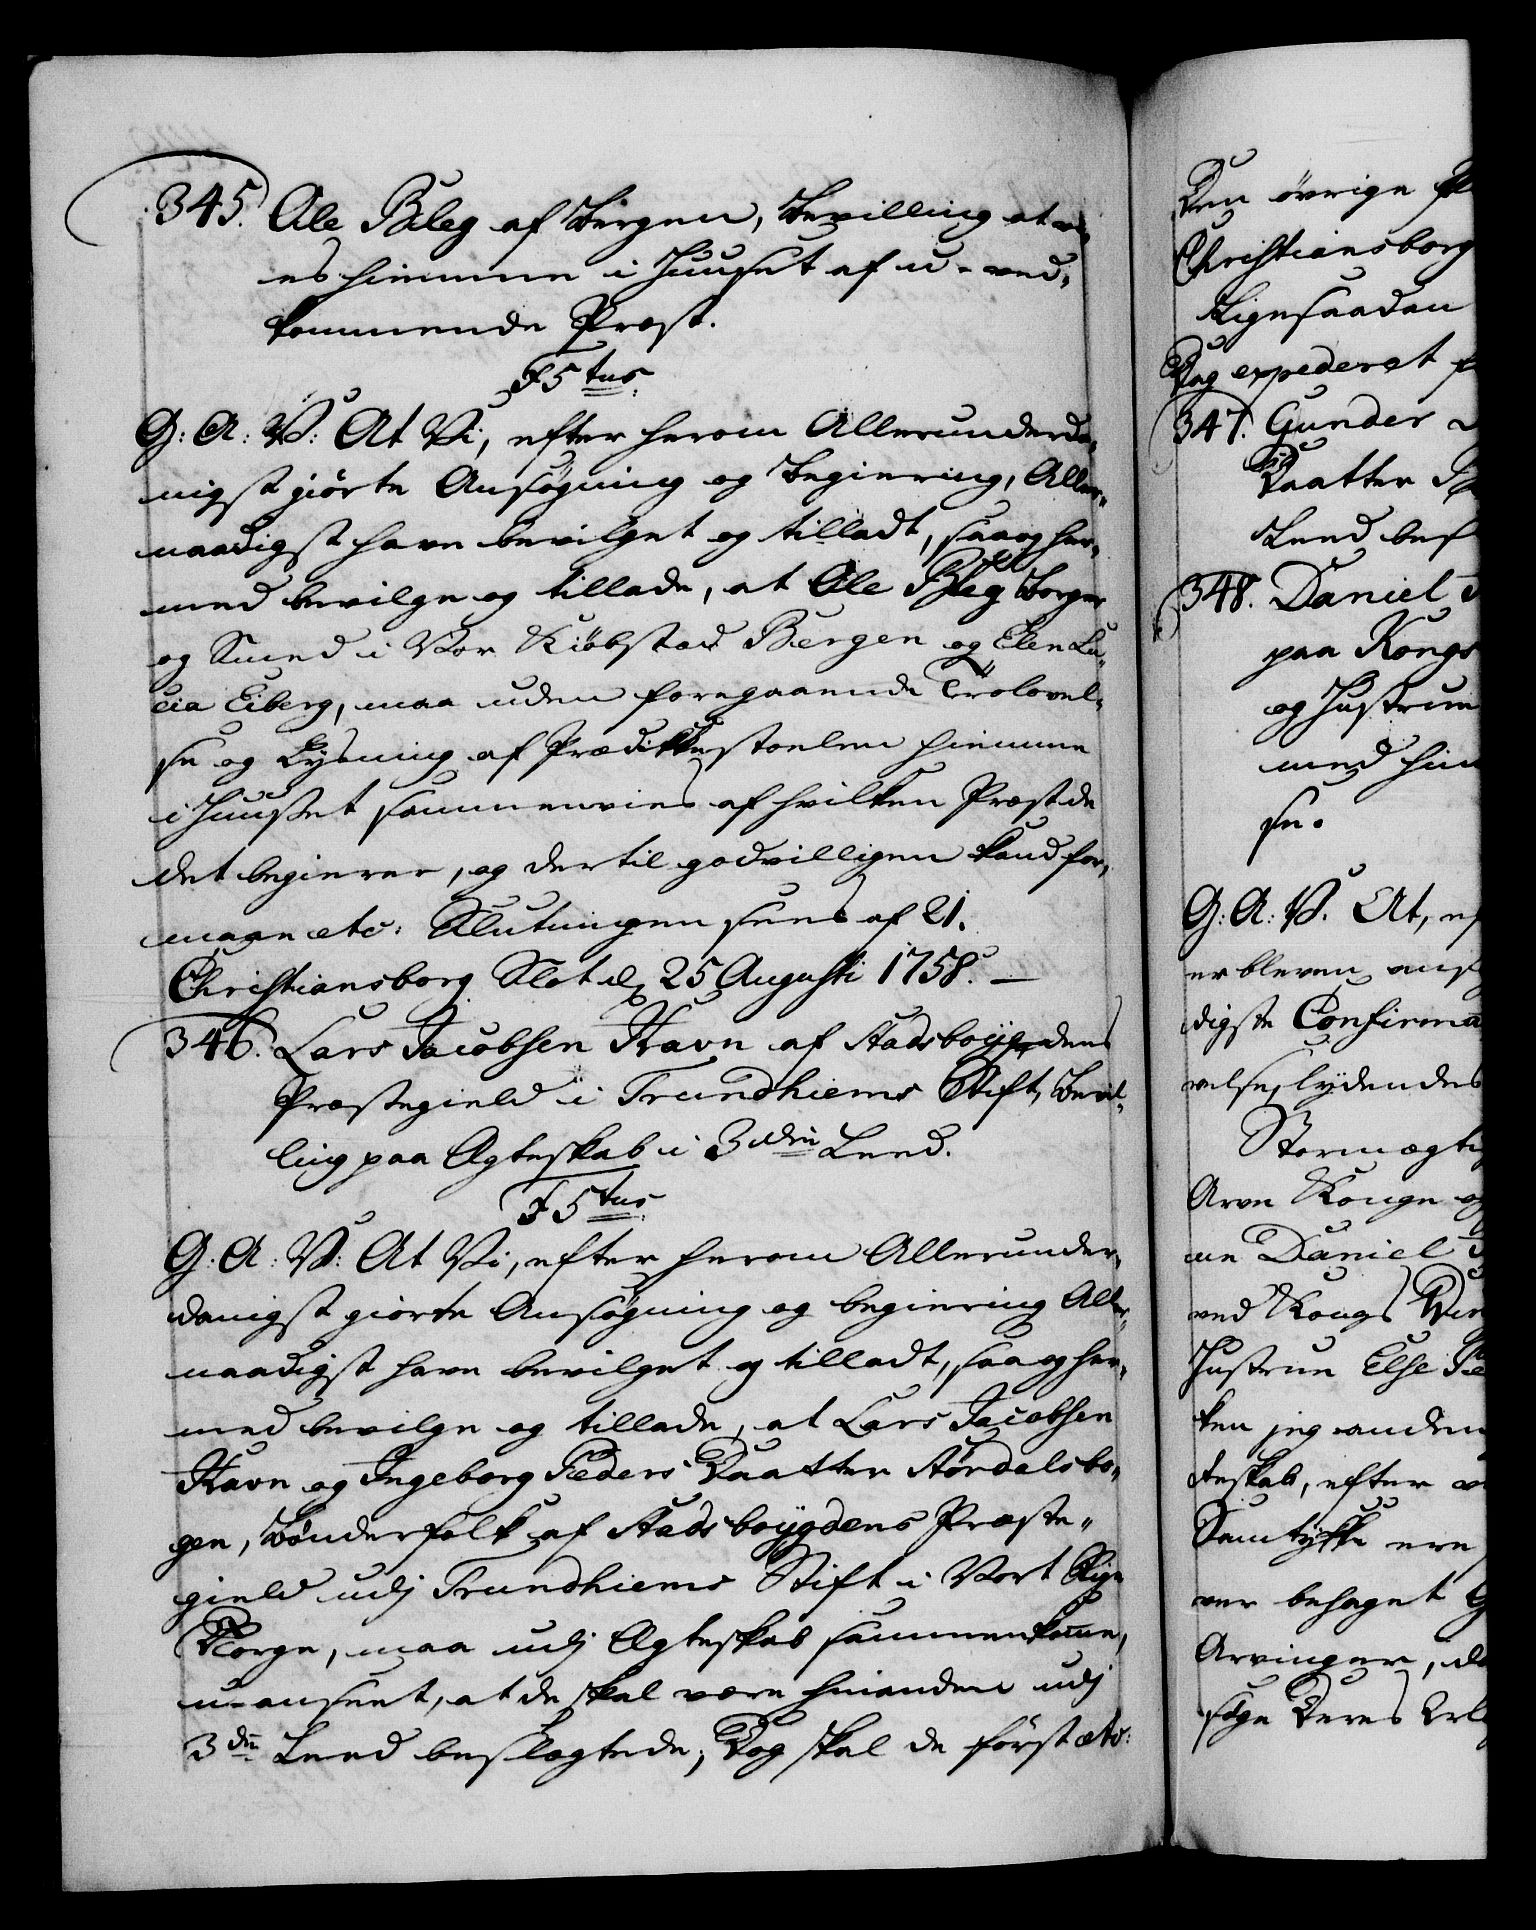 345. Ole Bleg af Bergen, Bevilling at vi-
es hiemme i Huuset af u-ved-
kommende Præst.
F 5tus
G: A: V: At Vi, efter herom Allerunderda-
nigst giorte Ansøgning og Begiering, Aller-
naadigst have bevilget og tilladt, saa og her-
med bevilge og tillade, at Ole Bleg Borger
og Smed i Vor Kiøbstad Bergen og Elen Lu-
cia Eiberg, maa uden foregaaende Trolovel-
se og Lysning af Prædikkestoelen hiemme
i Huuset sammenvies af hvilken Præst de
det begierer, og dertil godvilligen kand for-
maae etc: Slutningen sees af 21.
Christiansborg Slot d. 25 Augusti 1758. —
346. Lars Jacobsen Havn af Stadsboygdens
Præstegield i Trundhiems Stift, Bevil-
ling paa Ægteskab i 3die Leed.
F 5tus
G: A: V: At Vi, efter herom Allerunder-
danigst giorte Ansøgning og begiering Aller-
naadigst have bevilget og tilladt, saa og her-
med bevilge og tillade, at Lars Jacobsen
Havn og Ingeborg Peders Daatter Størdalsbo-
gen, Bønderfolk af Stadsboygdens Præste-
gield udj Trundhiems Stift i Vort Rige
Norge, maa udj Ægteskab sammenkomme,
u-anseet, at de skal være hinanden udj
3die Leed beslægtede; Dog skal de først etc:
Den øvrige
Christiansborg
Ligesaadan
Dag expederet
347. Gunder
Daatter
Leed bes
348. Daniel
paa Kongs
og Hustrue
med hin
se.
G: A: V. At, ef
er bleven ans
digste Confirma
velse, lydendes
Stormægtig
Arve Konge og
ne Daniel
ved Kongs
Hustrue Else Pe
ken jeg anden
teskab, efter
Samtykke ere
ver behaget
Arvinger,
søge Deres